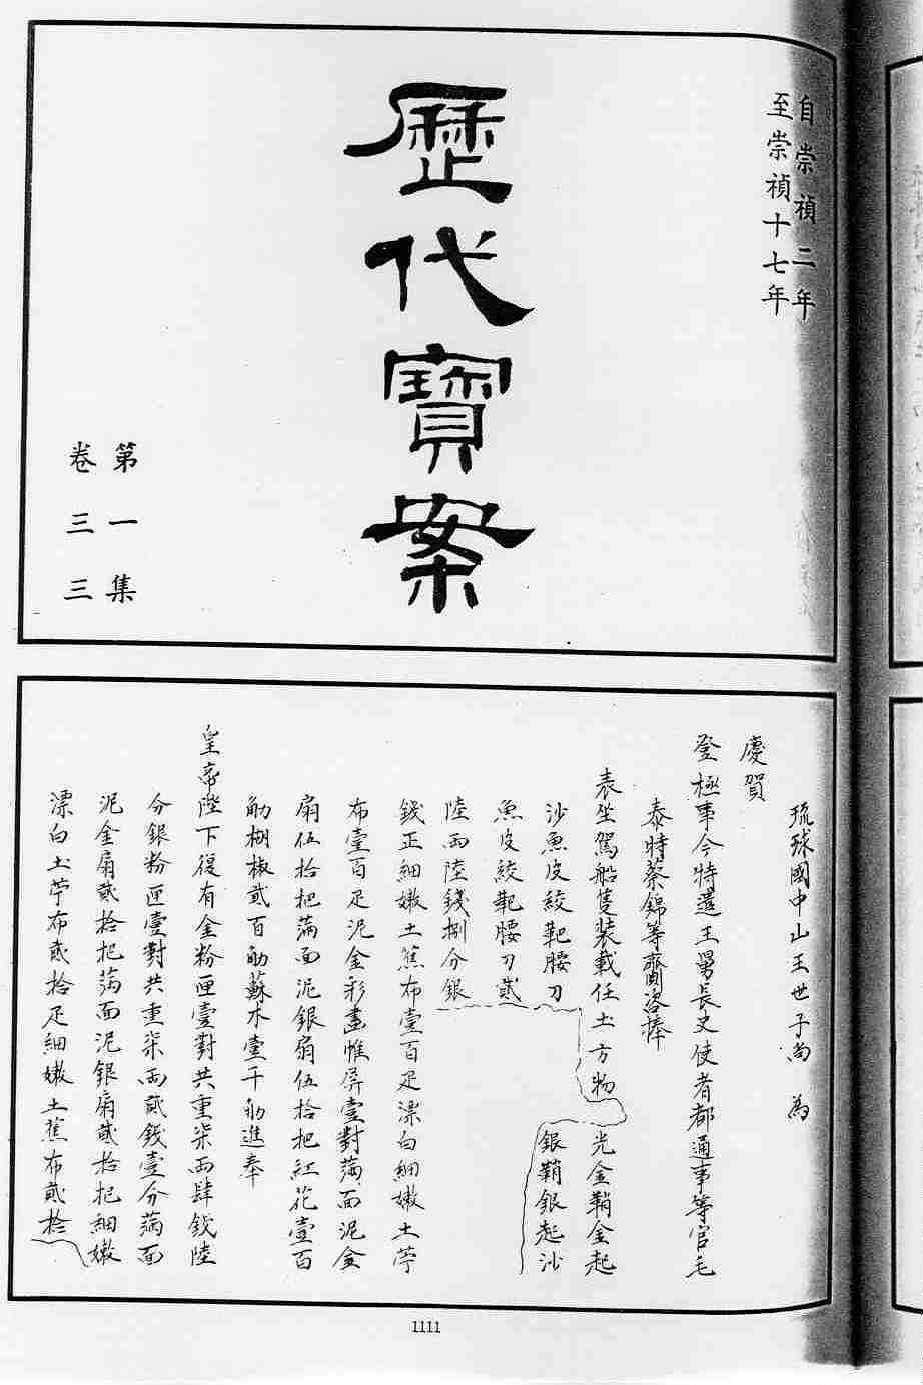 自崇禎二年
至崇禎十七年
歷代寶案
第一集
卷三三
琉球國中山王世子尚 為
慶賀
登極事今特遣王舅長史使者都通事等官毛
泰時蔡錦等齎咨捧
表坐駕船隻裝載任土方物 光金鞘金起
沙魚皮絞靶腰刀 銀鞘銀起沙
魚皮絞靶腰刀貳
陸両陸錢捌分銀
錢正細嫩土蕉布壹百疋漂白細嫩土苧
布壹百疋泥金彩畫帷屏壹對蒲面泥金
扇伍拾把蒲面泥銀扇伍拾把紅花壹百
觔椒貳百觔蘇木壹千觔進奉
皇帝陛下復有金粉匣壹對共重柒両肆錢陸
分銀粉匣壹對共重柒両貳錢壹分蒲面
泥金扇貳拾把蒲面泥銀扇貳拾把細嫩
漂白土苧布貳拾疋細嫩土蕉布貳拾
1111